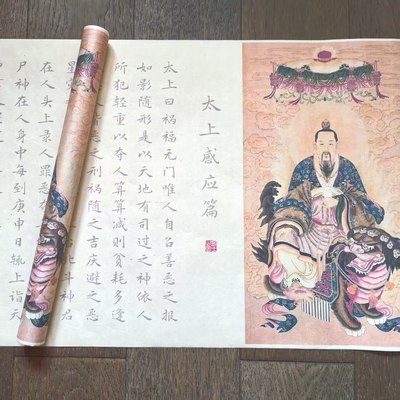 太上感应篇
太上曰祸福无门唯人自召善恶之报
如影随形是以天地有司过之神依人
所犯轻重以夺人算算减则贫耗多逢
恶之刑祸随之吉庆避之恶
星
北斗神君
在人头上录人罪恶
尸神在人身中每到庚申日辄上诣天